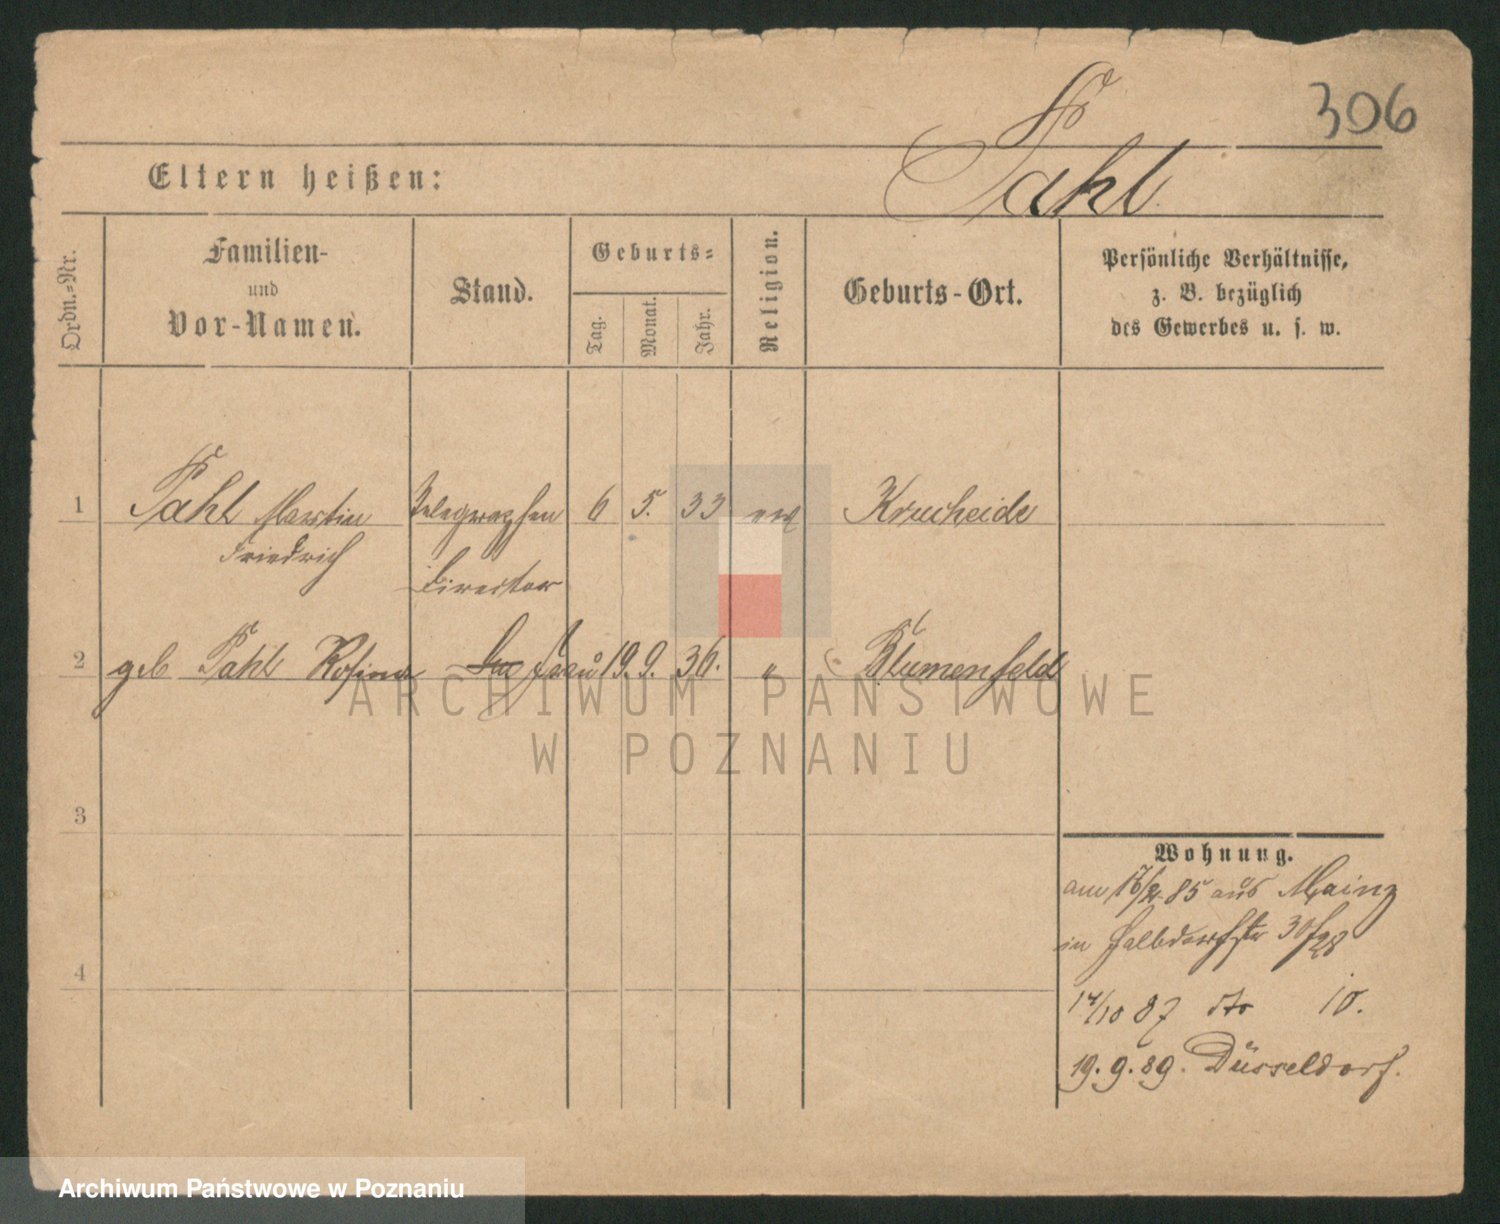 306
Pahl
Eltern heißen:
Ordn.-Nr.
Familien-
und
Vor-Namen.
Stand.
Geburts-
Tag.
Monat.
Jahr.
Religion.
Geburts-Ort.
Persönliche Verhältnisse,
z. B. bezüglich
des Gewerbes u. s. w.
1 Pahl Martin Telegraphen 6 5. 33 ev Krucheide
Friedrich
Director
2 geb Pahl Rosina Frau 19. 9. 36. " Blumenfeld
3
4
Wohnung.
am 16/2 85 aus Mainz
in Halbdorfstr 30/28
14/10 87 dto 10.
19. 9. 89. Düsseldorf.
ARCHIWUM PAŃSTWOWE
W POZNANIU
Archiwum Państwowe w Poznaniu